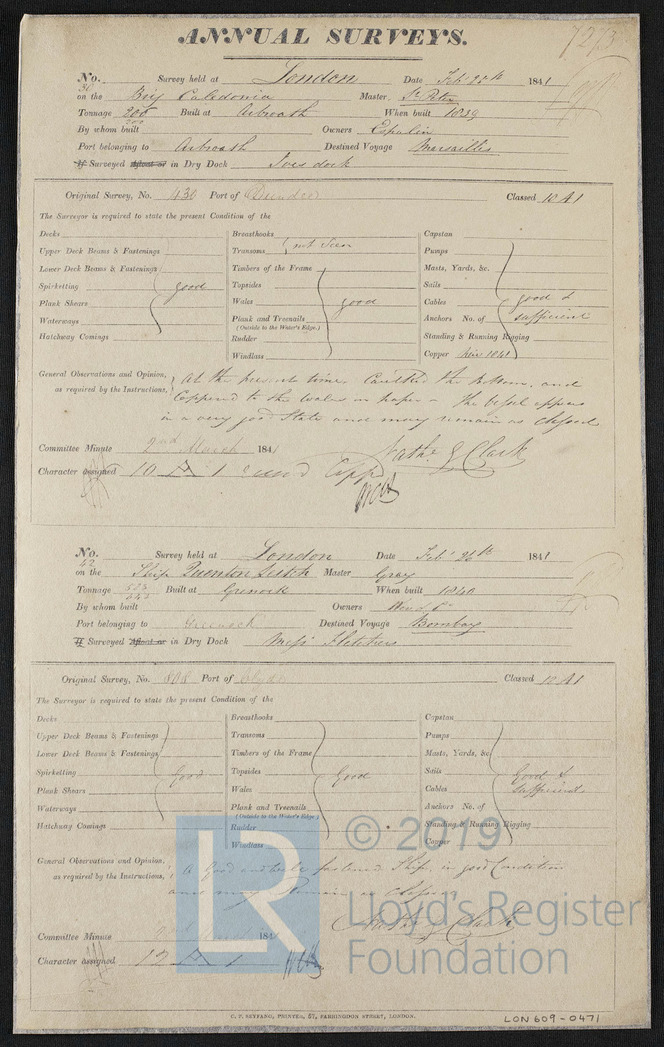 ANNUAL SURVEYS.
7273
No. 30 Survey held at London Date Feb 25th 1841
on the Brig Caledonia Master St Peter
Tonnage 200 Built at Arbroath When built 1839
By whom built Owners Espalin
Port belonging to Arbroath Destined Voyage Marsailles
If Surveyed Afloat or in Dry Dock Ives dock
Original Survey, No. 430 Port of Dundee Classed 10 A1
The Surveyor is required to state the present Condition of the
Decks Breasthooks Capstan
Upper Deck Beams & Fastenings Transoms not seen Pumps
Lower Deck Beams & Fastenings Timbers of the Frame Masts, Yards, &c.
Spirketting good Topsides Sails
Plank Shears Wales good Cables good &
Waterways Plank and Treenails Anchors No. of sufficient
(Outside to the Water's Edge.)
Hatchway Comings Rudder Standing & Running Rigging
Windlass Copper New 1841
General Observations and Opinion, At the present time Caulked the Bottom, and
as required by the Instructions, Coppered to the Wales on paper - The vessel appears
in a very good State and may remain as classed
Committee Minute 2nd March 1841 Nathl G Clark
Character assigned 10 A 1
No. 42 Survey held at London Date Feb 26th 1841
on the Ship Quenton Leitch Master Gray
Tonnage Built at Grenock When built 1840
By whom built Owners
Port belonging to Greenock Destined Voyage Bombay
If Surveyed Afloat or in Dry Dock Messrs Fletchers
Original Survey, No. 808 Port of Clyde Classed 12 A1
The Surveyor is required to state the present Condition of the
Decks Breasthooks Capstan
Upper Deck Beams & Fastenings Transoms Pumps
Lower Deck Beams & Fastenings Timbers of the Frame Masts, Yards, &c
Spirketting Good Topsides Good Sails Good &
Plank Shears Wales Cables sufficient
Waterways Plank and Treenails Anchors No. of
(Outside to the Water's Edge)
Hatchway Comings Rudder Standing & Running Rigging
Windlass Copper
General Observations and Opinion, A Good and well fastened Ship, in good Condition
as required by the Instructions, and may Remain as Classed
Committee Minute 2nd March 184 Nathl G Clark
Character assigned 12 A 1
LR
© 2019
Lloyd's Register
Foundation
C. F. SEYFANG, PRINTER, 57, FARRINGDON STREET, LONDON.
LON609-0471